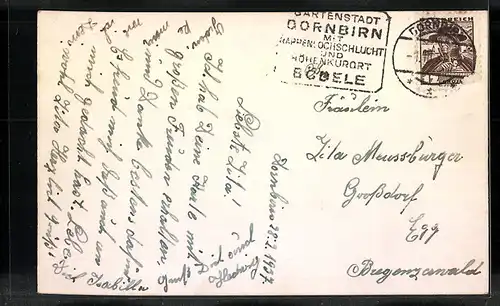 GARTENSTADT
DORNBIRN
MIT
RAPPENLOCHSCHLUCHT
UND
HÖHENKURORT
BÖDELE
DORNBIRN
Fräulein
Zita Meussburger
Großdorf
Egg
Bregenzerwald
Dornbirn
Liebste Zita!
Ich hab Deine Karte mit
großen Freuden erhalten
und Danke bestens dafür
Es freut mich daß auch an
mich gedacht hast. Lebe
wohl Zita Herzlich grüßt
Dich Isabilla
Gruß Dich und
Hedwig